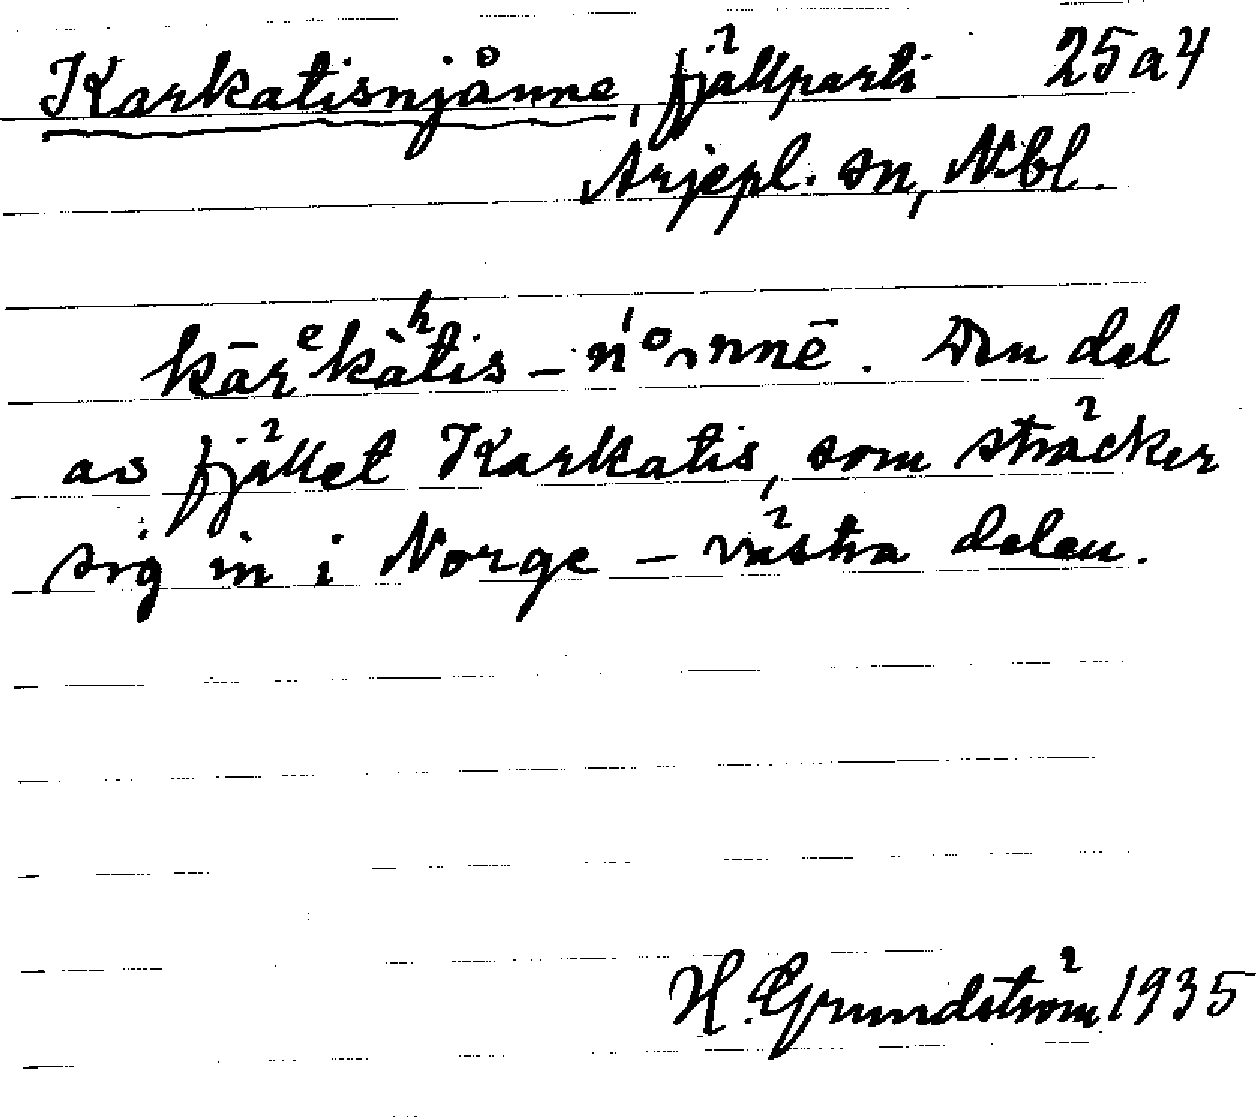 Karkatisnjånne, fjällparti 25a4
Arjepl. sn, Nbl.
kārᵉkàʰtis – ń°nnē. Den del
av fjället Karkatis, som sträcker
sig in i Norge – västra delen.
H. Grundström 1935